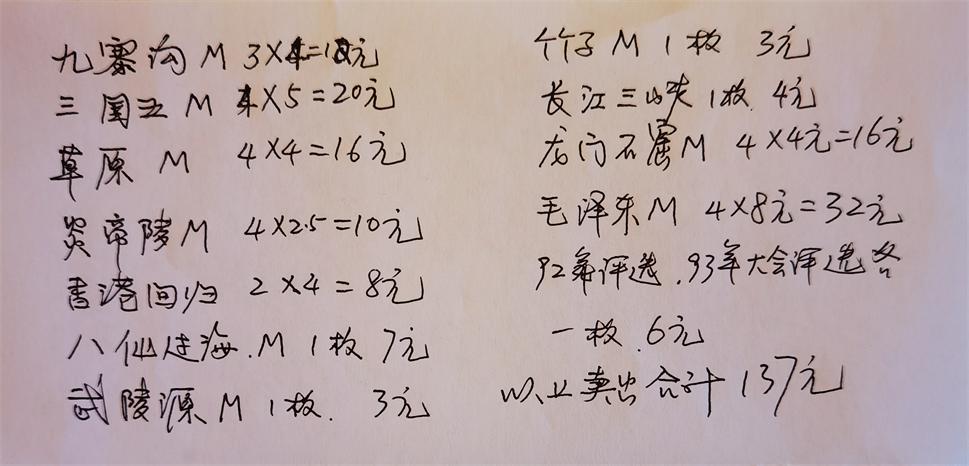 九寨沟 M 3×4=12元
三国五 M 4×5=20元
草原 M 4×4=16元
炎帝陵 M 4×2.5=10元
香港回归 2×4=8元
八仙过海.M 1枚 7元
武陵源 M 1枚. 3元
竹子 M 1枚 3元
长江三峡 1枚. 4元
龙门石窟 M 4×4元=16元
毛泽东 M 4×8元=32元
92年评选.93年大会评选各
一枚.6元
以上卖出合计 137元